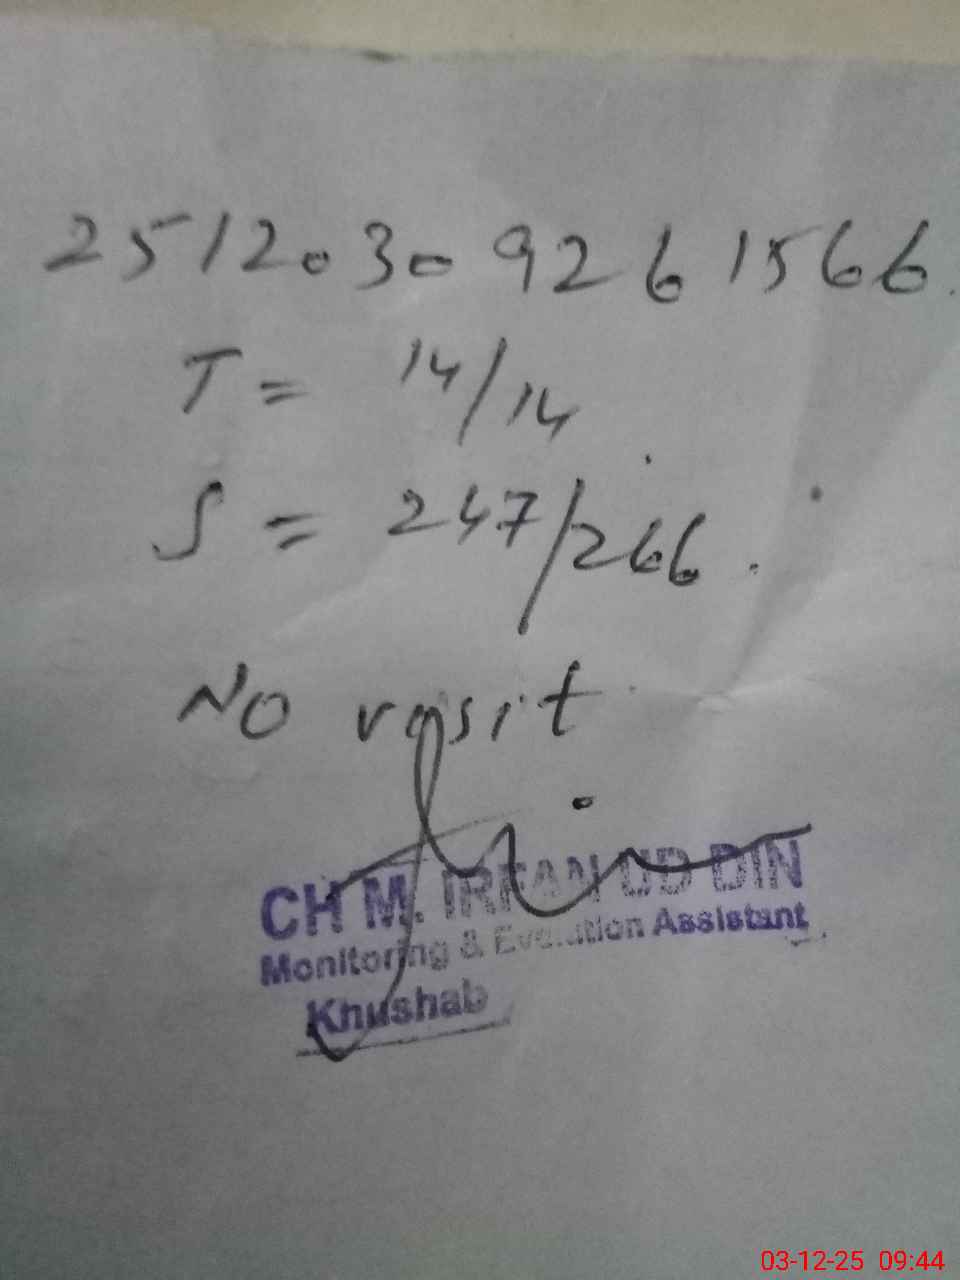 2512030 9261566.
T = 14/14
S = 247/266.
No vasit
CH M. IRFAN UD DIN
Monitoring & Evaluation Assistant
Khushab
03-12-25 09:44